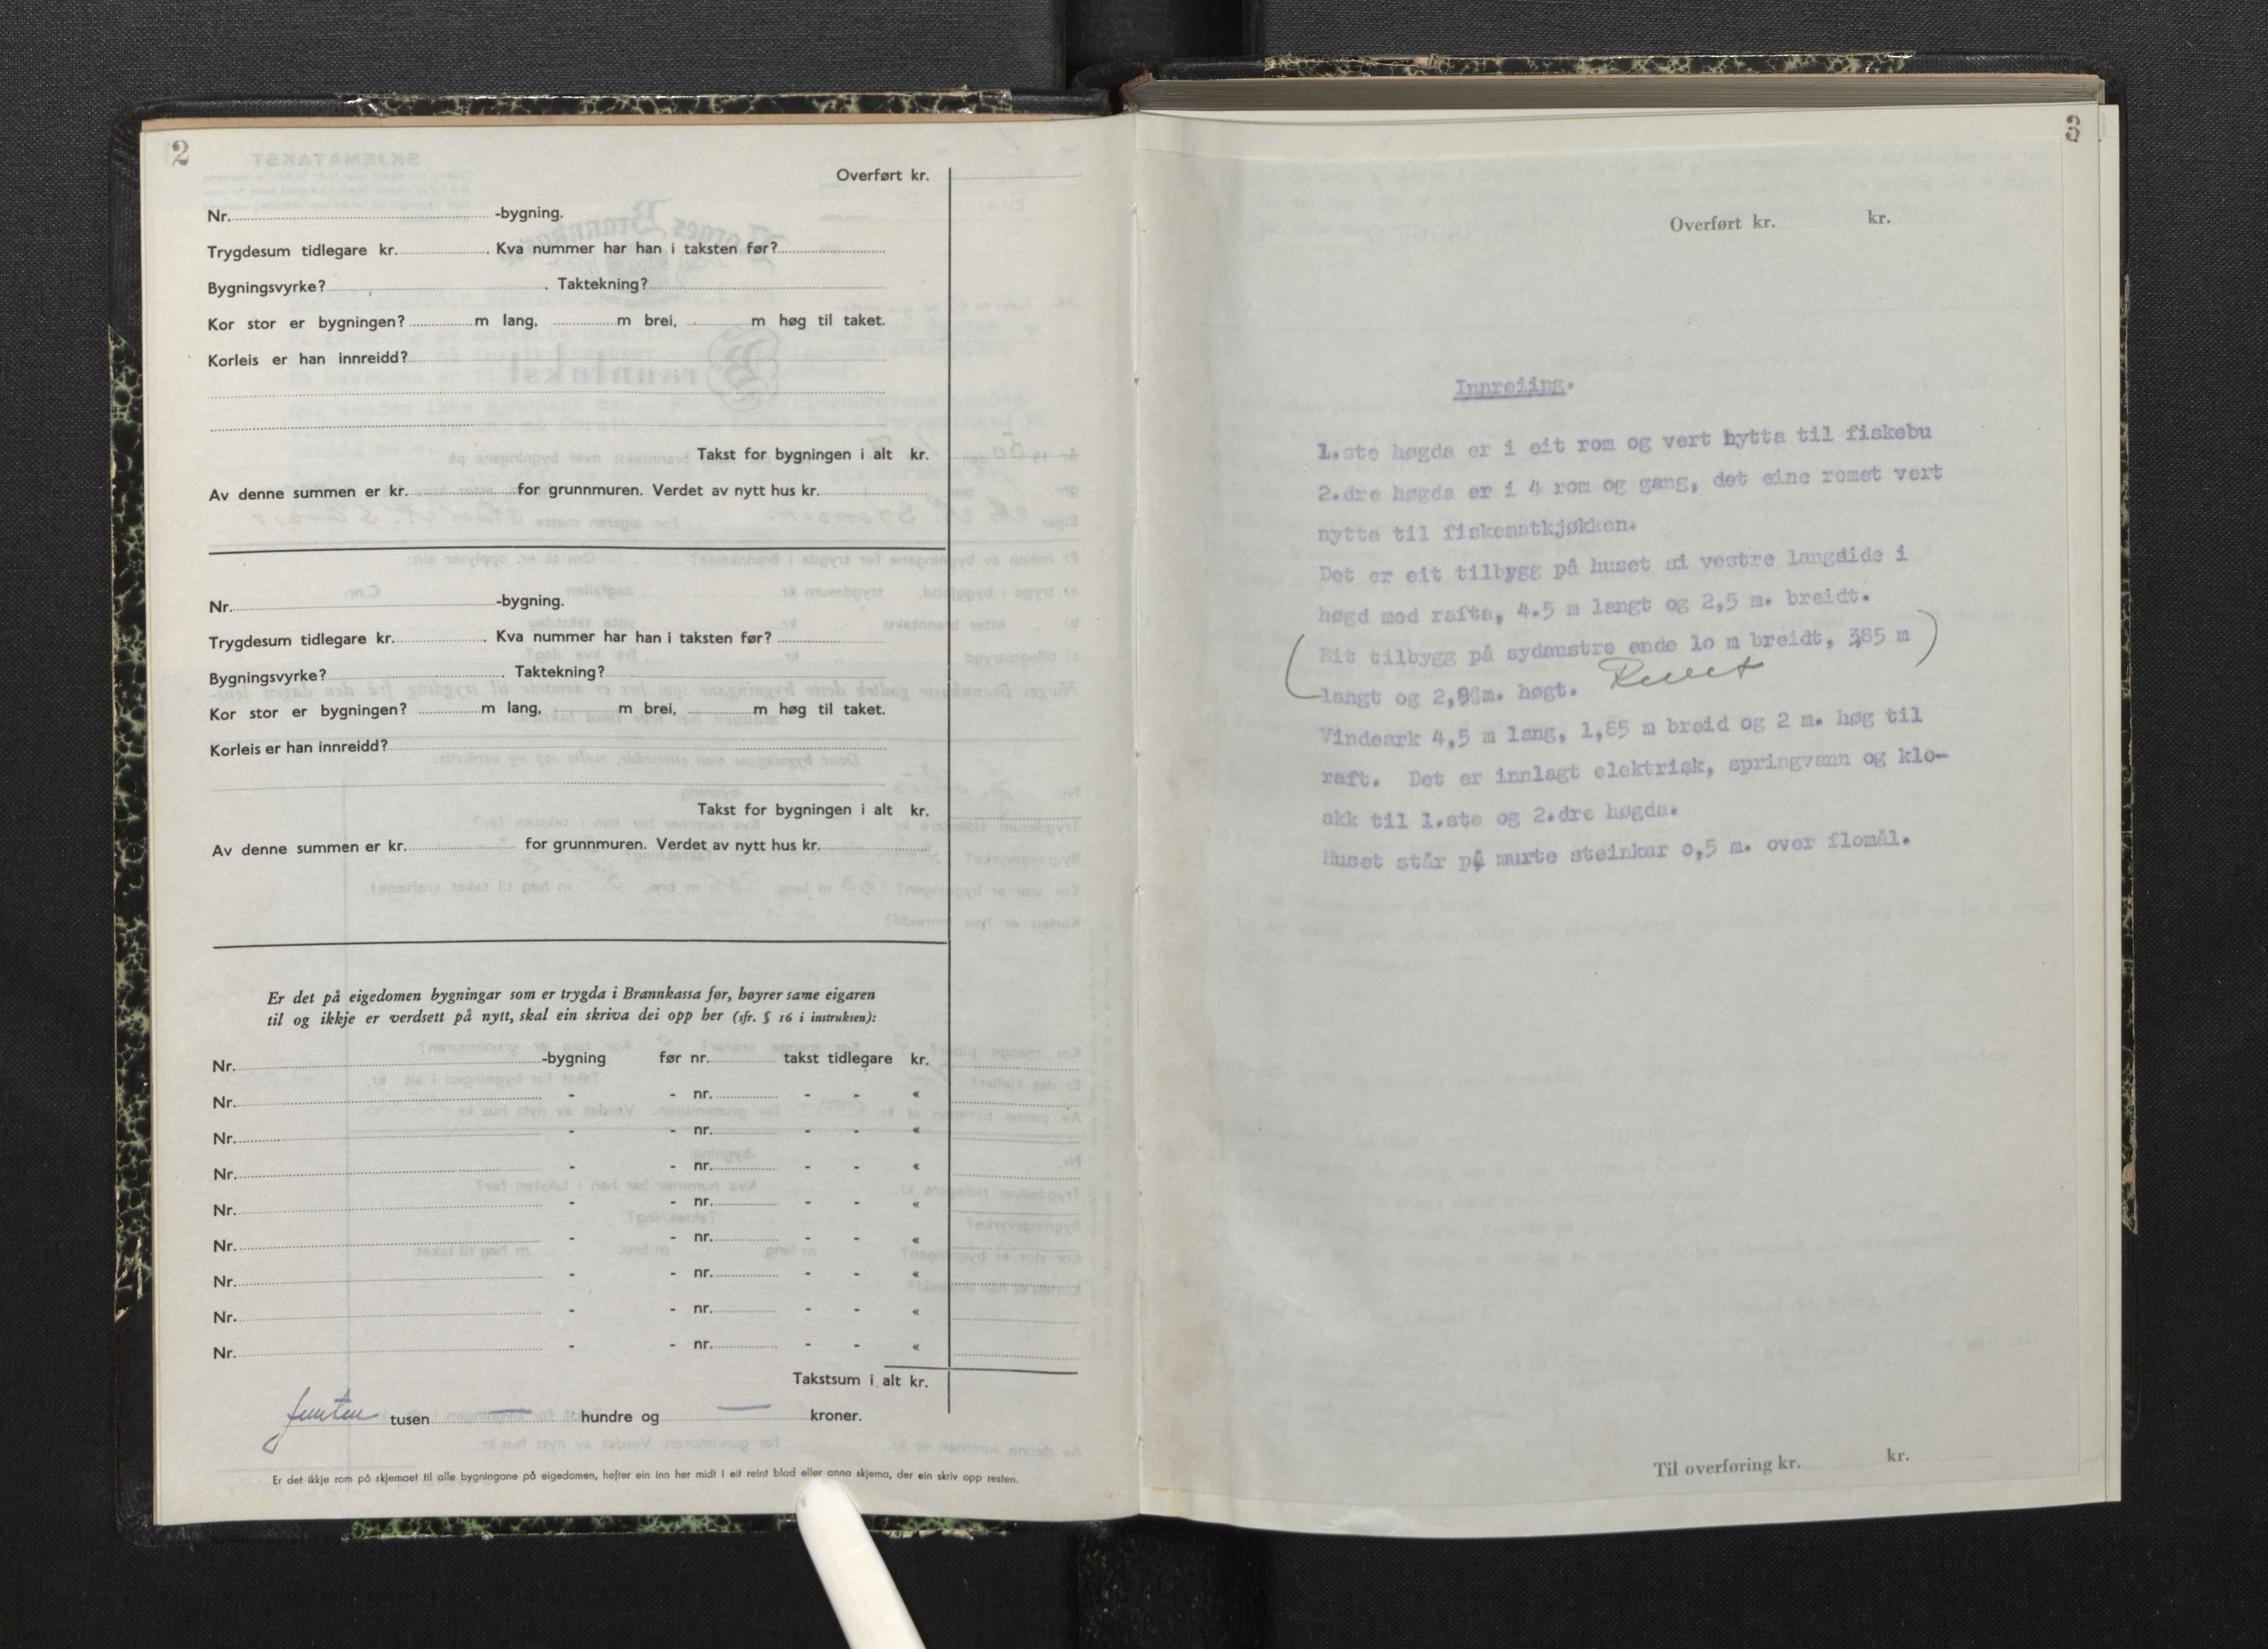 2
Overført kr.
Nr. -bygning.
Trygdesum tidlegare kr. . Kva nummer har han i taksten før?
Bygningsvyrke? . Taktekning?
Kor stor er bygningen? m lang, m brei, m høg til taket.
Korleis er han innreidd?
Takst for bygningen i alt kr.
Av denne summen er kr. for grunnmuren. Verdet av nytt hus kr.
Nr. -bygning.
Trygdesum tidlegare kr. . Kva nummer har han i taksten før?
Bygningsvyrke? . Taktekning?
Kor stor er bygningen? m lang, m brei, m høg til taket.
Korleis er han innreidd?
Takst for bygningen i alt kr.
Av denne summen er kr. for grunnmuren. Verdet av nytt hus kr.
Er det på eigedomen bygningar som er trygda i Brannkassa før, høyrer same eigaren
til og ikkje er verdsett på nytt, skal ein skriva dei opp her (sfr. § 16 i instruksen):
Nr. -bygning før nr. takst tidlegare kr.
Nr. - - nr. - - «
Nr. - - nr. - - «
Nr. - - nr. - - «
Nr. - - nr. - - «
Nr. - - nr. - - «
Nr. - - nr. - - «
Nr. - - nr. - - «
Nr. - - nr. - - «
Takstsum i alt kr.
femten tusen — hundre og — kroner.
Er det ikkje rom på skjemaet til alle bygningane på eigedomen, hefter ein inn her midt i eit reint blad eller anna skjema, der ein skriv opp resten.
3
Overført kr. kr.
Innreiing.
1.ste høgda er i eit rom og vert nytta til fiskebu
2.dre høgda er i 4 rom og gang, det eine romet vert
nytta til fiskematkjøkken.
Det er eit tilbygg på huset si vestre langside i
høgd med rafta, 4.5 m langt og 2,5 m. breidt.
(Eit tilbygg på sydaustre ende lo m breidt, 385 m)
langt og 2,98m. høgt. Revet
Vindeark 4,5 m lang, 1,85 m breid og 2 m. høg til
raft. Det er innlagt elektrisk, springvann og klo-
akk til 1.ste og 2.dre høgda.
Huset står på murte steinkar o,5 m. over flomål.
Til overføring kr. kr.